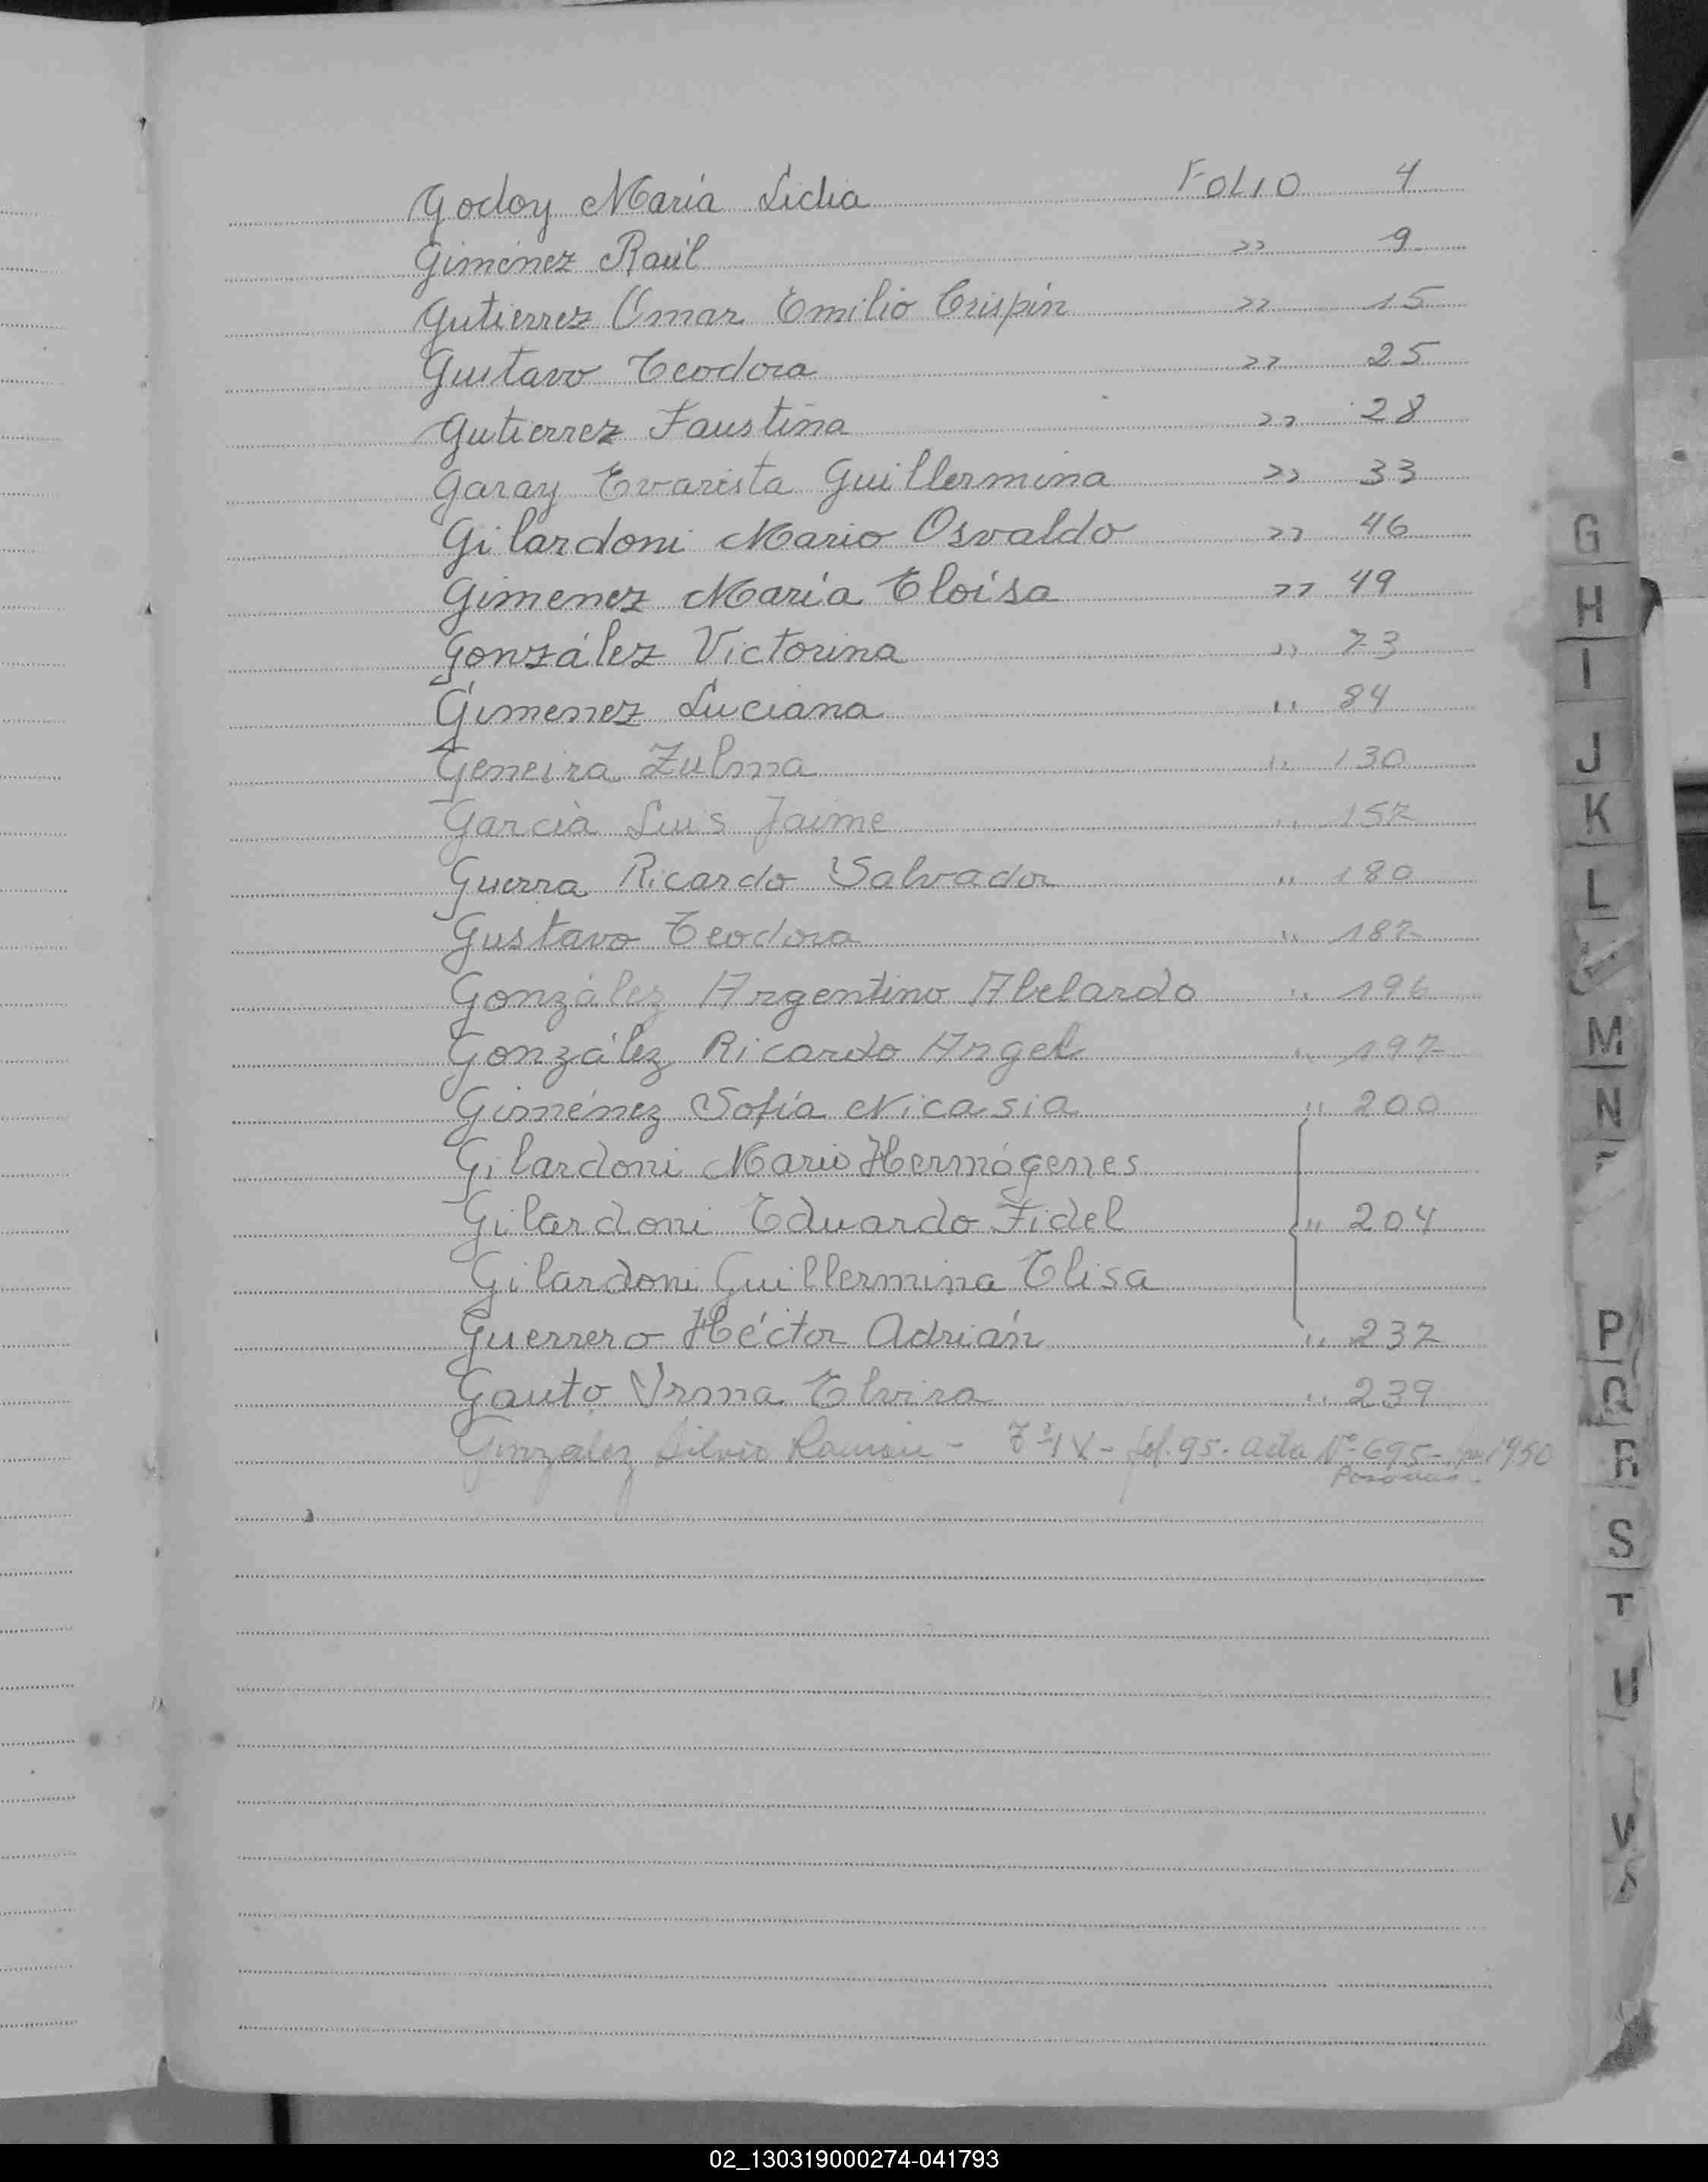 Godoy María Lidia FOLIO 4
Giménez Raúl " 9
Gutierrez Omar Emilio Crispín " 15
Gustavo Teodora " 25
Gutierrez Faustina " 28
Garay Evarista Guillermina " 33
Gilardoni Mario Osvaldo " 46
Gimenez María Eloísa " 49
González Victorina " 73
Gimenez Luciana " 84
Geneira Zulma " 130
Garcià Luis Jaime " 157
Guerra Ricardo Salvador " 180
Gustavo Teodora " 187
González Argentino Abelardo " 196
González Ricardo Angel " 197
Giménez Sofía Nicasia " 200
Gilardoni Mario Hermógenes
Gilardoni Eduardo Fidel " 204
Gilardoni Guillermina Elisa
Guerrero Héctor Adrián " 237
Gauto Irma Elvira " 239
González Silvio Ramón - fol. 95 - acta Nº 695 - 1950
Posadas -
G
H
I
J
K
L
M
N
P
Q
R
S
T
U
V
02_130319000274-041793